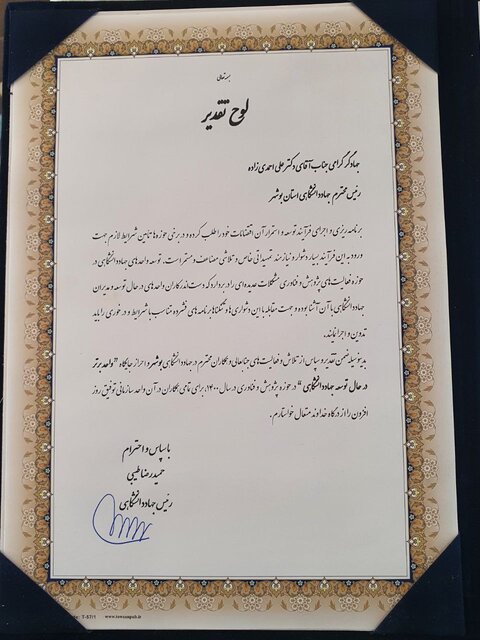 بسمه‌تعالی
لوح تقدیر
جهادگر گرامی جناب آقای دکتر علی احمدی‌زاده
رئیس محترم جهاددانشگاهی استان بوشهر
برنامه‌ریزی و اجرای فرآیند توسعه و استمرار آن اقتضائات خود را طلب کرده و در برخی حوزه‌ها تأمین شرایط لازم جهت
ورود به این فرآیند بسیار دشوار و نیازمند تمهیداتی خاص و تلاشی مضاعف و مستمر است. توسعه واحدهای جهاددانشگاهی در
حوزه فعالیت‌های پژوهش و فناوری مشکلات عدیده‌ای را در بر دارد که دست‌اندرکاران واحدهای در حال توسعه و مدیران
جهاددانشگاهی با آن آشنا بوده و جهت مقابله با این دشواری‌ها و تنگناها برنامه‌های فشرده متناسب با شرایط و در خوری را باید
تدوین و اجرا نمایند.
بدینوسیله ضمن تقدیر و سپاس از تلاش و فعالیت‌های جنابعالی و همکاران محترم در جهاددانشگاهی بوشهر و احراز جایگاه "واحد برتر
در حال توسعه جهاددانشگاهی" در حوزه پژوهش و فناوری در سال ۱۴۰۰، برای تمامی همکاران در آن واحد سازمانی توفیق روز
افزون را از درگاه خداوند متعال خواستارم.
با سپاس و احترام
حمیدرضا طیبی
رئیس جهاددانشگاهی
T-57/1 www.towsnapub.ir